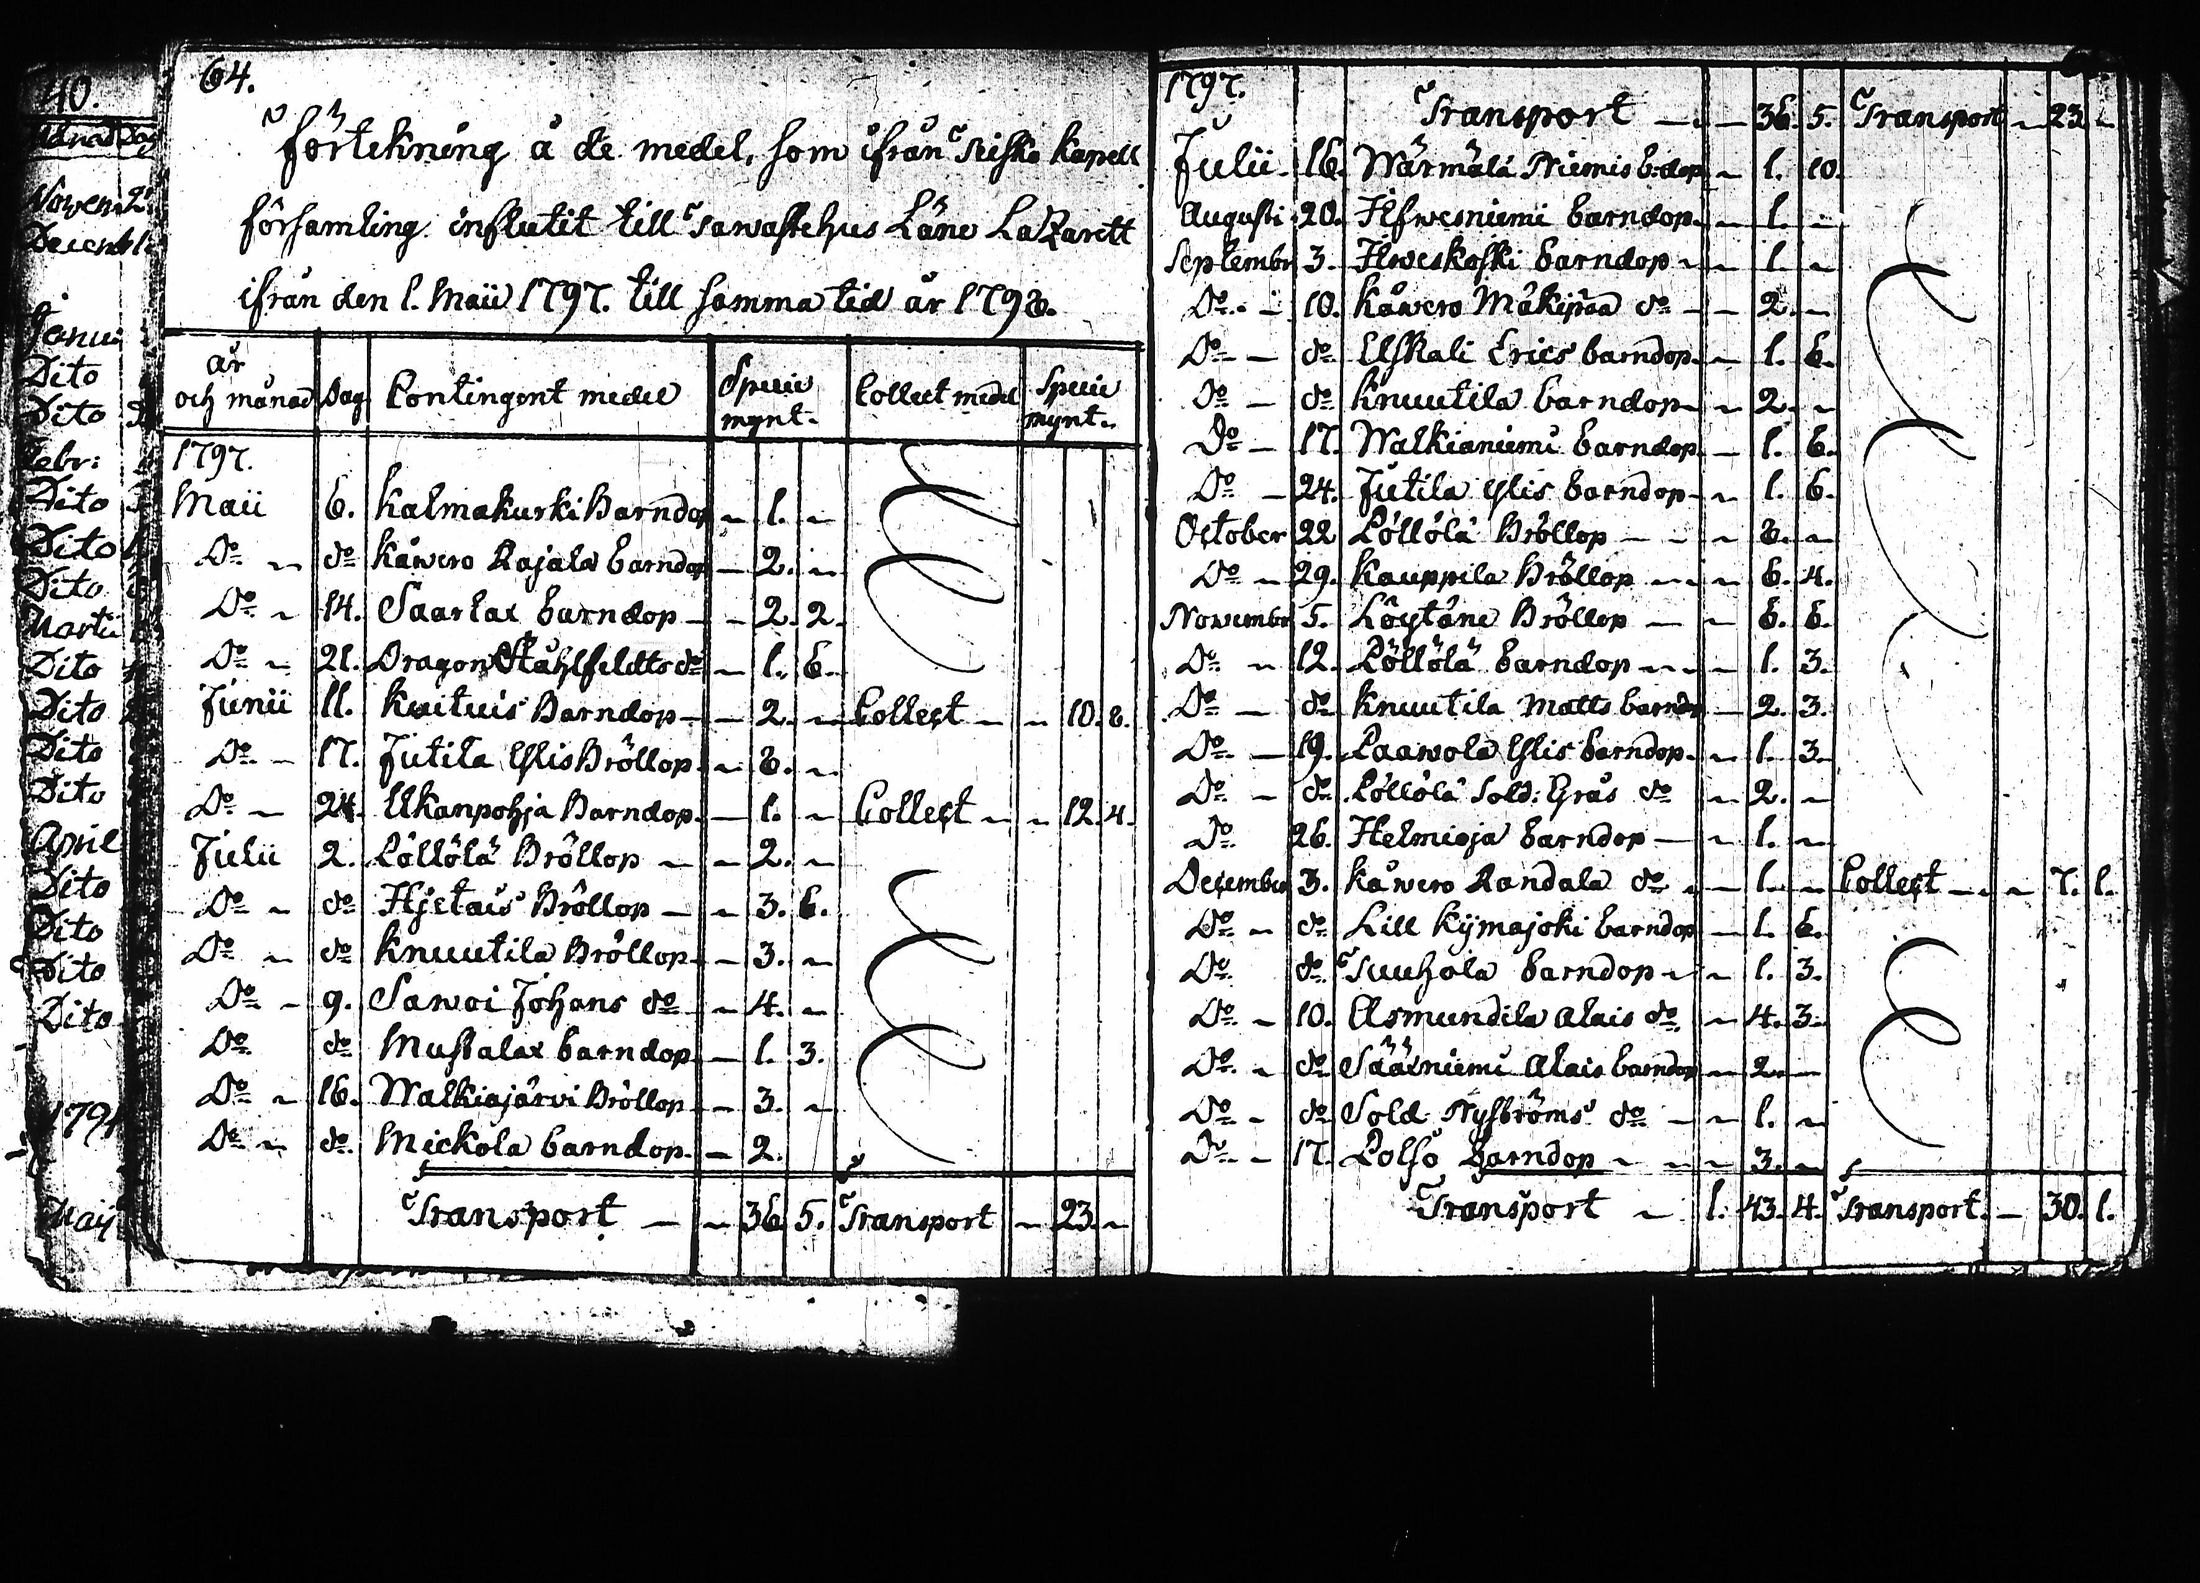 40.
Dag
Novem 2
Decemb
Janu
Dito
Dito
Febr:
Dito
Dito
Dito
Martii
Dito
Dito
Dito
Dito
April
Dito
Dito
Dito
Dito
179
Maij
64.
Förtekning å de medel, som ifrån Teisko Kapell
församling influtit till Tawastehus Läns Lazarett
ifrån den 1. Maii 1797. till samma tid år 1798.
år och månad Dag Contingent medel Specie mynt. Collect medel Specie mynt.
1797.
Maii 6. Kalmakurki Barndop ~ 1. ~
Do ~ do Kåwero Rajala barndop — 2. ~
Do ~ 14. Saarlax barndop — — 2. 2.
Do ~ 21. Dragon Ståhlfeldts do — 1. 6.
Junii 11. Kuituis Barndop — — 2. ~ Collect — ~ 10. 8.
Do — 17. Jutila Eslis Bröllop. ~ 8. ~
Do — 24. Ukanpohja Barndop. — 1. ~ Collect ~ ~ 12. 4.
Julii 2. Löllölä Bröllop ~ — 2. ~
Do ~ do Hjetais Bröllop — ~ 3. 6.
Do ~ do Knuutila Bröllop. — 3. ~
Do ~ 9. Sawoi Johans do — ~ 4. ~
Do do Mustalax barndop. — 1. 3.
Do ~ 16. Walkiajärvi Bröllop — 3. ~
Do ~ do Mickola barndop. — 2.
Transport — ~ 36 5. Transport ~ 23. ~
1797.
Transport — — 36. 5. Transport ~ 23 ~
Julii 16. Wärmälä Niemis b:dop ~ 1. 10.
Augusti 20. Ilfwesniemi barndop. ~ 1. ~
Septembr 3. Ilweskoski barndop ~ ~ 1. ~
Do. — 10. Kåwero Mäkipää do — — 2. ~
Do — do Elskali Erics barndop. ~ 1. 6.
Do — do Knuutila barndop ~ ~ 2. ~
Do — 17. Walkianiemi barndop. — 1. 6.
Do — 24. Jutila Eslis barndop — ~ 1. 6.
October 22 Löllölä Bröllop — — ~ 8. ~
Do ~ 29. Kauppila Bröllop ~ ~ ~ 6. 4.
Novembr 5. Löytäne Bröllop — ~ 6. 6.
Do ~ 12. Löllölä barndop ~ ~ ~ 1. 3.
Do — do Knuutila Matts barndop — 2. 3.
Do — 19. Paawola Eslis barndop. ~ 1. 3.
Do — do Löllölä Sold: Gräs do ~ 2. ~
Do 26. Helmioja barndop — ~ 1. ~
December 3. Kåwero Randala do ~ — 1. ~ Collect — ~ ~ 7. 1.
Do ~ do Lill Kijmajoki barndop — 1. 6.
Do do Suuhola barndop ~ ~ 1. 3.
Do ~ 10. Asmundila Alais do ~ 4. 3.
Do ~ do Säärniemi Alais barndop — 2. —
Do ~ do Sold. Nyströms do — ~ 1. ~
Do ~ 17. Polso Barndop ~ ~ ~ 3. ~
Transport ~ 1. 43. 4. Transport. — 30. 1.